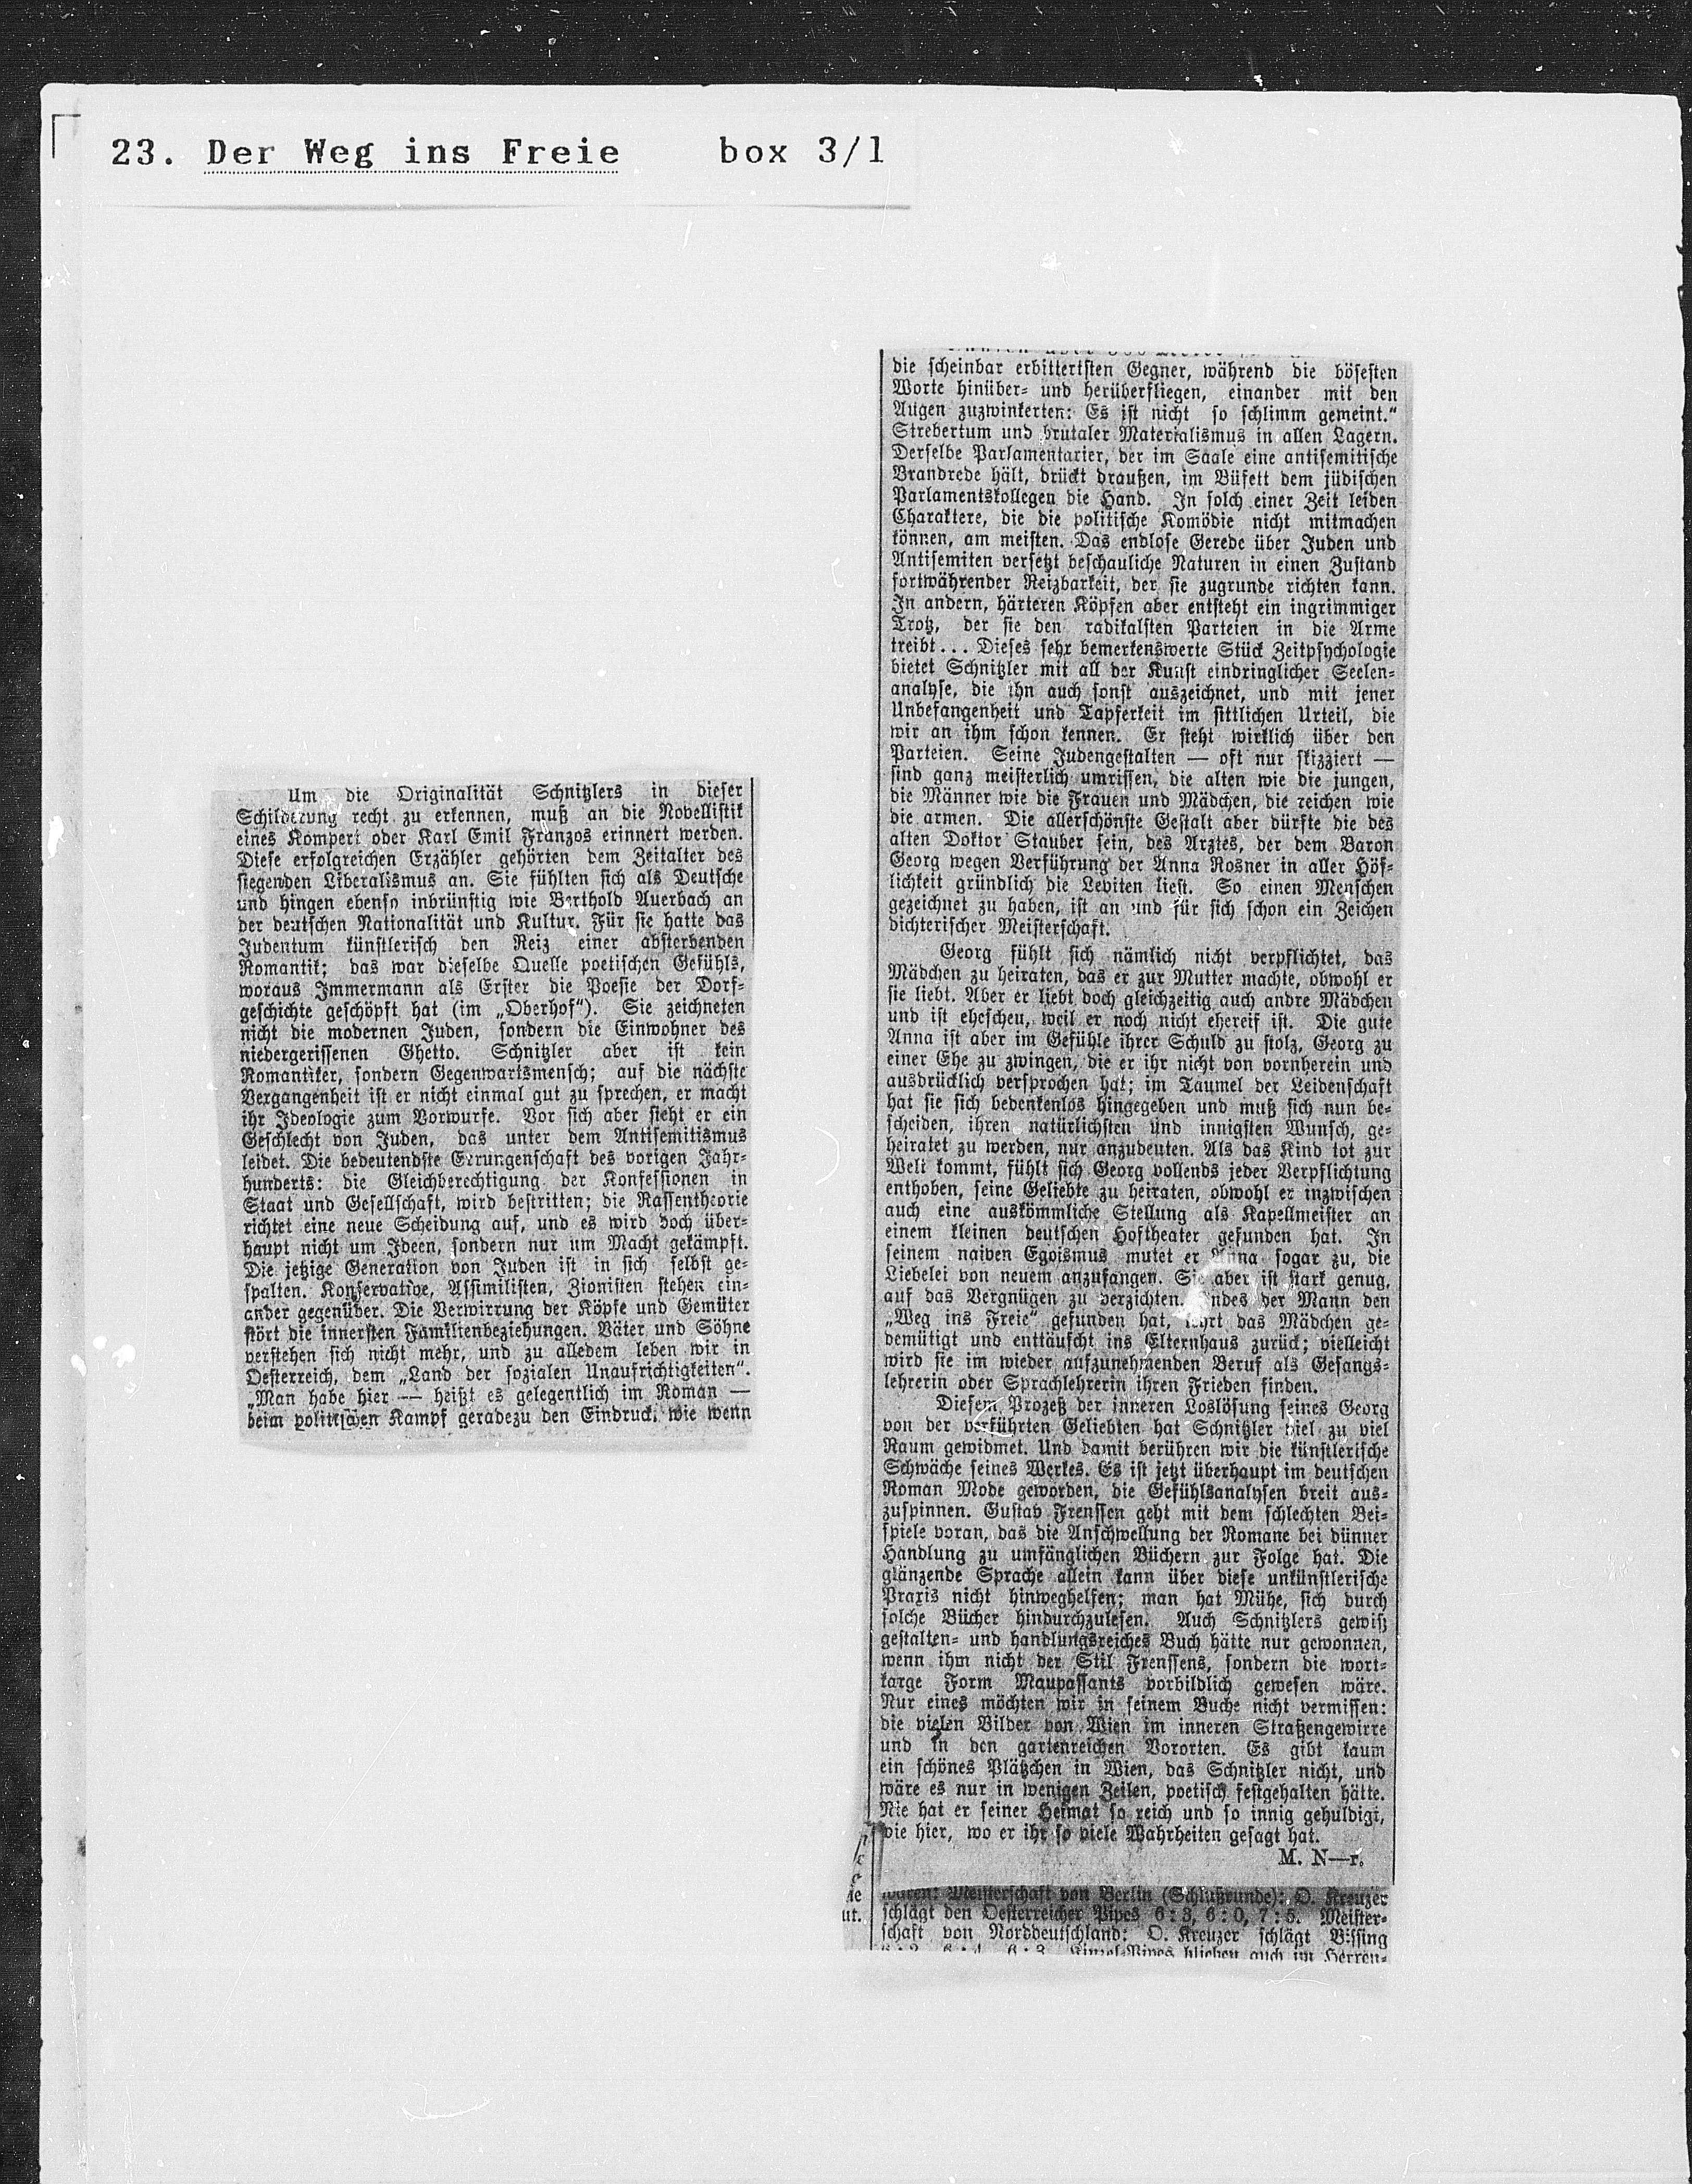 23. Der Weg ins Freie box 3/1
Um die Originalität Schnitzlers in dieser
Schilderung recht zu erkennen, muß an die Novellistik
eines Kompert oder Karl Emil Franzos erinnert werden.
Diese erfolgreichen Erzähler gehörten dem Zeitalter des
siegenden Liberalismus an. Sie fühlten sich als Deutsche
und hingen ebenso inbrünstig wie Berthold Auerbach an
der deutschen Nationalität und Kultur. Für sie hatte das
Judentum künstlerisch den Reiz einer absterbenden
Romantik; das war dieselbe Quelle poetischen Gefühls,
woraus Immermann als Erster die Poesie der Dorf-
geschichte geschöpft hat (im „Oberhof“). Sie zeichneten
nicht die modernen Juden, sondern die Einwohner des
niedergerissenen Ghetto. Schnitzler aber ist kein
Romantiker, sondern Gegenwartsmensch; auf die nächste
Vergangenheit ist er nicht einmal gut zu sprechen, er macht
ihr Ideologie zum Vorwurfe. Vor sich aber sieht er ein
Geschlecht von Juden, das unter dem Antisemitismus
leidet. Die bedeutendste Errungenschaft des vorigen Jahr-
hunderts: die Gleichberechtigung der Konfessionen in
Staat und Gesellschaft, wird bestritten; die Rassentheorie
richtet eine neue Scheidung auf, und es wird doch über-
haupt nicht um Ideen, sondern nur um Macht gekämpft.
Die jetzige Generation von Juden ist in sich selbst ge-
spalten. Konservative, Assimilisten, Zionisten stehen ein-
ander gegenüber. Die Verwirrung der Köpfe und Gemüter
stört die innersten Familienbeziehungen. Väter und Söhne
verstehen sich nicht mehr, und zu alledem leben wir in
Oesterreich, dem „Land der sozialen Unaufrichtigkeiten“.
„Man habe hier — heißt es gelegentlich im Roman —
beim politischen Kampf geradezu den Eindruck, wie wenn
die scheinbar erbittertsten Gegner, während die bösesten
Worte hinüber- und herüberfliegen, einander mit den
Augen zuzwinkerten: Es ist nicht so schlimm gemeint.“
Strebertum und brutaler Materialismus in allen Lagern.
Derselbe Parlamentarier, der im Saale eine antisemitische
Brandrede hält, drückt draußen, im Büfett dem jüdischen
Parlamentskollegen die Hand. In solch einer Zeit leiden
Charaktere, die die politische Komödie nicht mitmachen
können, am meisten. Das endlose Gerede über Juden und
Antisemiten versetzt beschauliche Naturen in einen Zustand
fortwährender Reizbarkeit, der sie zugrunde richten kann.
In andern, härteren Köpfen aber entsteht ein ingrimmiger
Trotz, der sie den radikalsten Parteien in die Arme
treibt... Dieses sehr bemerkenswerte Stück Zeitpsychologie
bietet Schnitzler mit all der Kunst eindringlicher Seelen-
analyse, die ihn auch sonst auszeichnet, und mit jener
Unbefangenheit und Tapferkeit im sittlichen Urteil, die
wir an ihm schon kennen. Er steht wirklich über den
Parteien. Seine Judengestalten — oft nur skizziert —
sind ganz meisterlich umrissen, die alten wie die jungen,
die Männer wie die Frauen und Mädchen, die reichen wie
die armen. Die allerschönste Gestalt aber dürfte die des
alten Doktor Stauber sein, des Arztes, der dem Baron
Georg wegen Verführung der Anna Rosner in aller Höf-
lichkeit gründlich die Leviten liest. So einen Menschen
gezeichnet zu haben, ist an und für sich schon ein Zeichen
dichterischer Meisterschaft.
Georg fühlt sich nämlich nicht verpflichtet, das
Mädchen zu heiraten, das er zur Mutter machte, obwohl er
sie liebt. Aber er liebt doch gleichzeitig auch andre Mädchen
und ist ehescheu, weil er noch nicht ehereif ist. Die gute
Anna ist aber im Gefühle ihrer Schuld zu stolz, Georg zu
einer Ehe zu zwingen, die er ihr nicht von vornherein und
ausdrücklich versprochen hat; im Taumel der Leidenschaft
hat sie sich bedenkenlos hingegeben und muß sich nun be-
scheiden, ihren natürlichsten und innigsten Wunsch, ge-
heiratet zu werden, nur anzudeuten. Als das Kind tot zur
Welt kommt, fühlt sich Georg vollends jeder Verpflichtung
enthoben, seine Geliebte zu heiraten, obwohl er inzwischen
auch eine auskömmliche Stellung als Kapellmeister an
einem kleinen deutschen Hoftheater gefunden hat. In
seinem naiven Egoismus mutet er Anna sogar zu, die
Liebelei von neuem anzufangen. Sie aber ist stark genug,
auf das Vergnügen zu verzichten. Indes der Mann den
„Weg ins Freie“ gefunden hat, kehrt das Mädchen ge-
demütigt und enttäuscht ins Elternhaus zurück; vielleicht
wird sie im wieder aufzunehmenden Beruf als Gesangs-
lehrerin oder Sprachlehrerin ihren Frieden finden.
Diesem Prozeß der inneren Loslösung seines Georg
von der verführten Geliebten hat Schnitzler viel zu viel
Raum gewidmet. Und damit berühren wir die künstlerische
Schwäche seines Werkes. Es ist jetzt überhaupt im deutschen
Roman Mode geworden, die Gefühlsanalysen breit aus-
zuspinnen. Gustav Frenssen geht mit dem schlechten Bei-
spiele voran, das die Anschwellung der Romane bei dünner
Handlung zu umfänglichen Büchern zur Folge hat. Die
glänzende Sprache allein kann über diese unkünstlerische
Praxis nicht hinweghelfen; man hat Mühe, sich durch
solche Bücher hindurchzulesen. Auch Schnitzlers gewiß
gestalten- und handlungsreiches Buch hätte nur gewonnen,
wenn ihm nicht der Stil Frenssens, sondern die wort-
karge Form Maupassants vorbildlich gewesen wäre.
Nur eines möchten wir in seinem Buche nicht vermissen:
die vielen Bilder von Wien im inneren Straßengewirre
und in den gartenreichen Vororten. Es gibt kaum
ein schönes Plätzchen in Wien, das Schnitzler nicht, und
wäre es nur in wenigen Zeilen, poetisch festgehalten hätte.
Nie hat er seiner Heimat so reich und so innig gehuldigt,
wie hier, wo er ihr so viele Wahrheiten gesagt hat.
M. N—r.
waren: Meisterschaft von Berlin (Schlußrunde): O. Kreuzer
schlägt den Oesterreicher Pipes 6:3, 6:0, 7:5. Meister-
ut. schaft von Norddeutschland: O. Kreuzer schlägt Bissing
blieben auch im Herren-